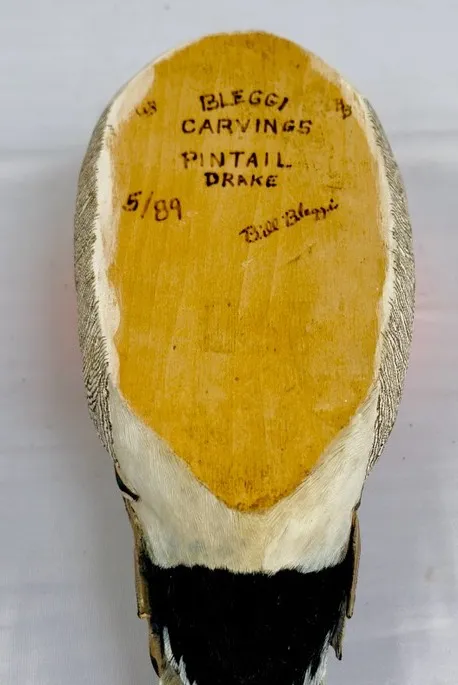 BLEGGI
CARVINGS
PINTAIL
DRAKE
5/89
Bill Bleggi